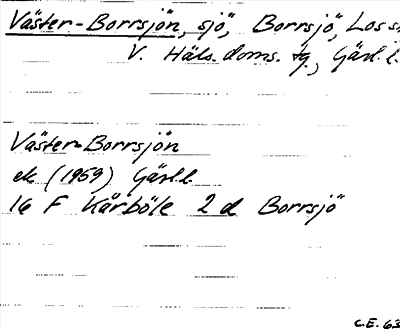 Väster-Borrsjön, sjö, Borrsjö, Los sn
V. Häls. doms. tg., Gävl. l.
Väster-Borrsjön
ek (1959) Gävl. l.
16 F Kårböle 2 d Borrsjö
C.E. 63